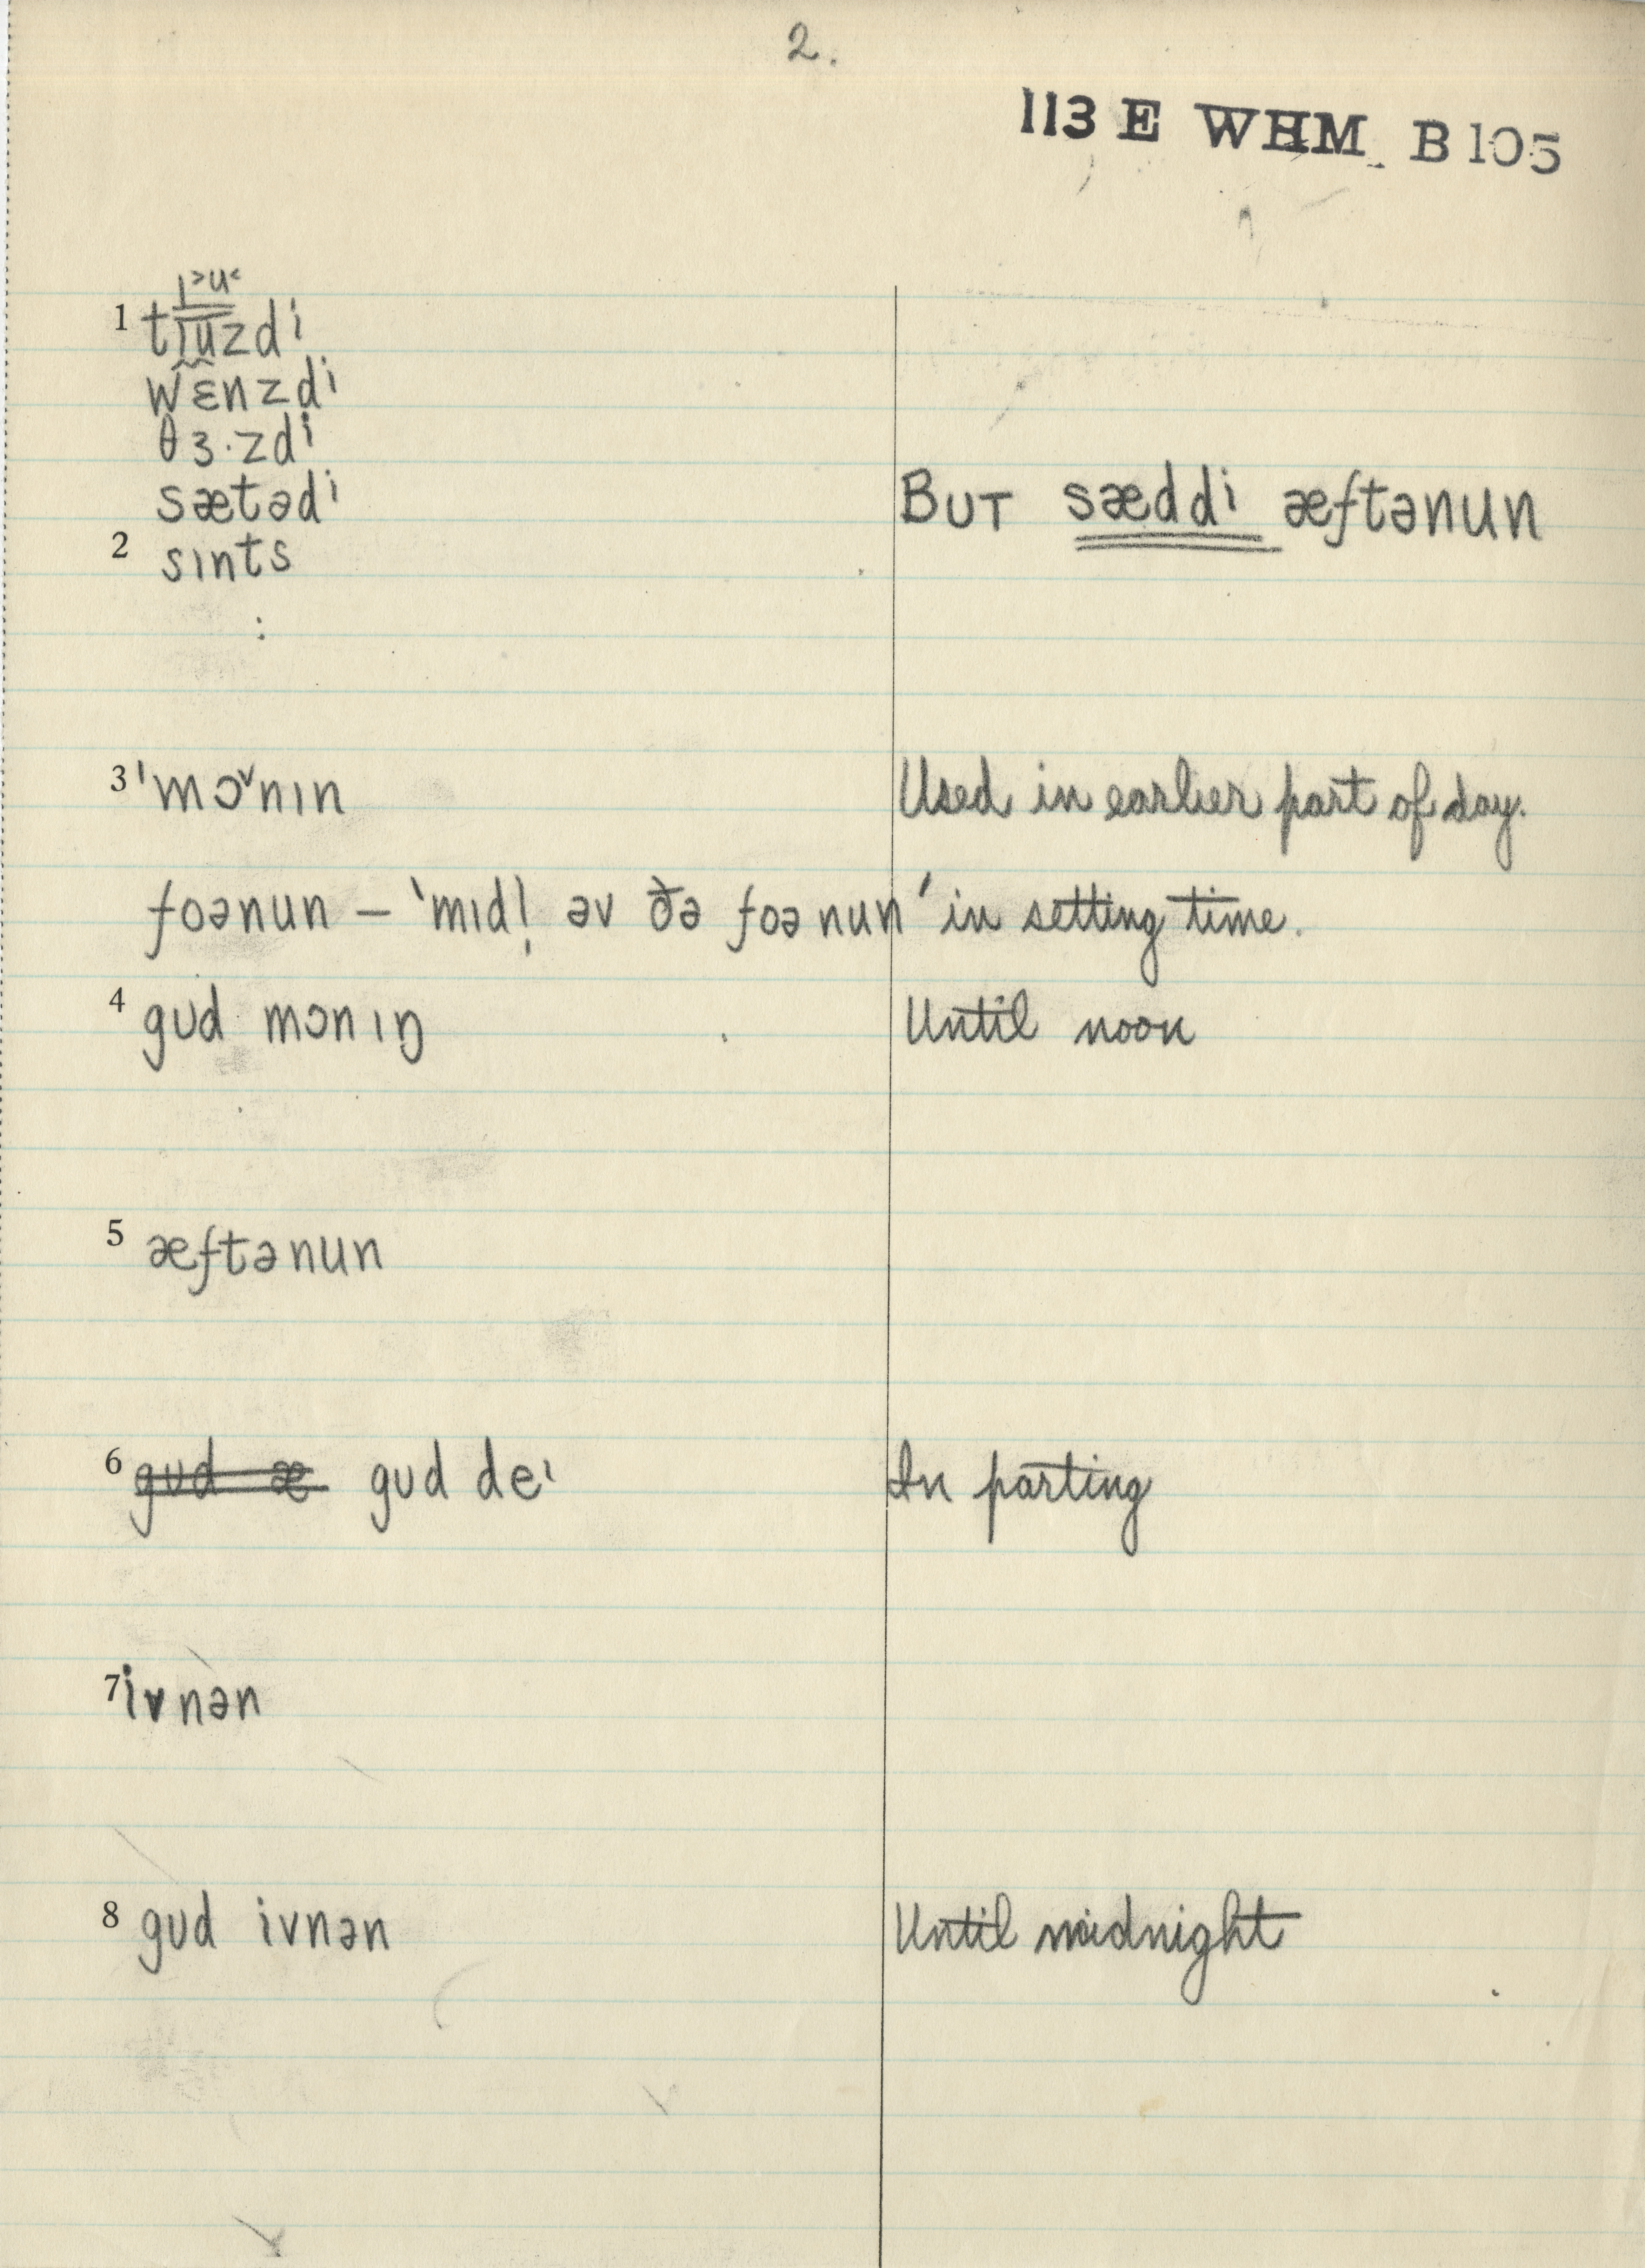 2.
113 E WHM B105
ɪ˃u˂
1 tɪuzdi
wɛ̃nzdi
θɜ·zdi
sætədi BUT sæddi æftənun
2 sɪnts
:
3 'mɔ˅nɪn Used in earlier part of day.
foənun – 'mɪdl̩ əv ðə foənun' in setting time.
4 gʊd mɔnɪŋ Until noon
5 æftənun
6 gʊd æ gʊd deɪ In parting
7 ivnən
8 gʊd ivnən Until midnight